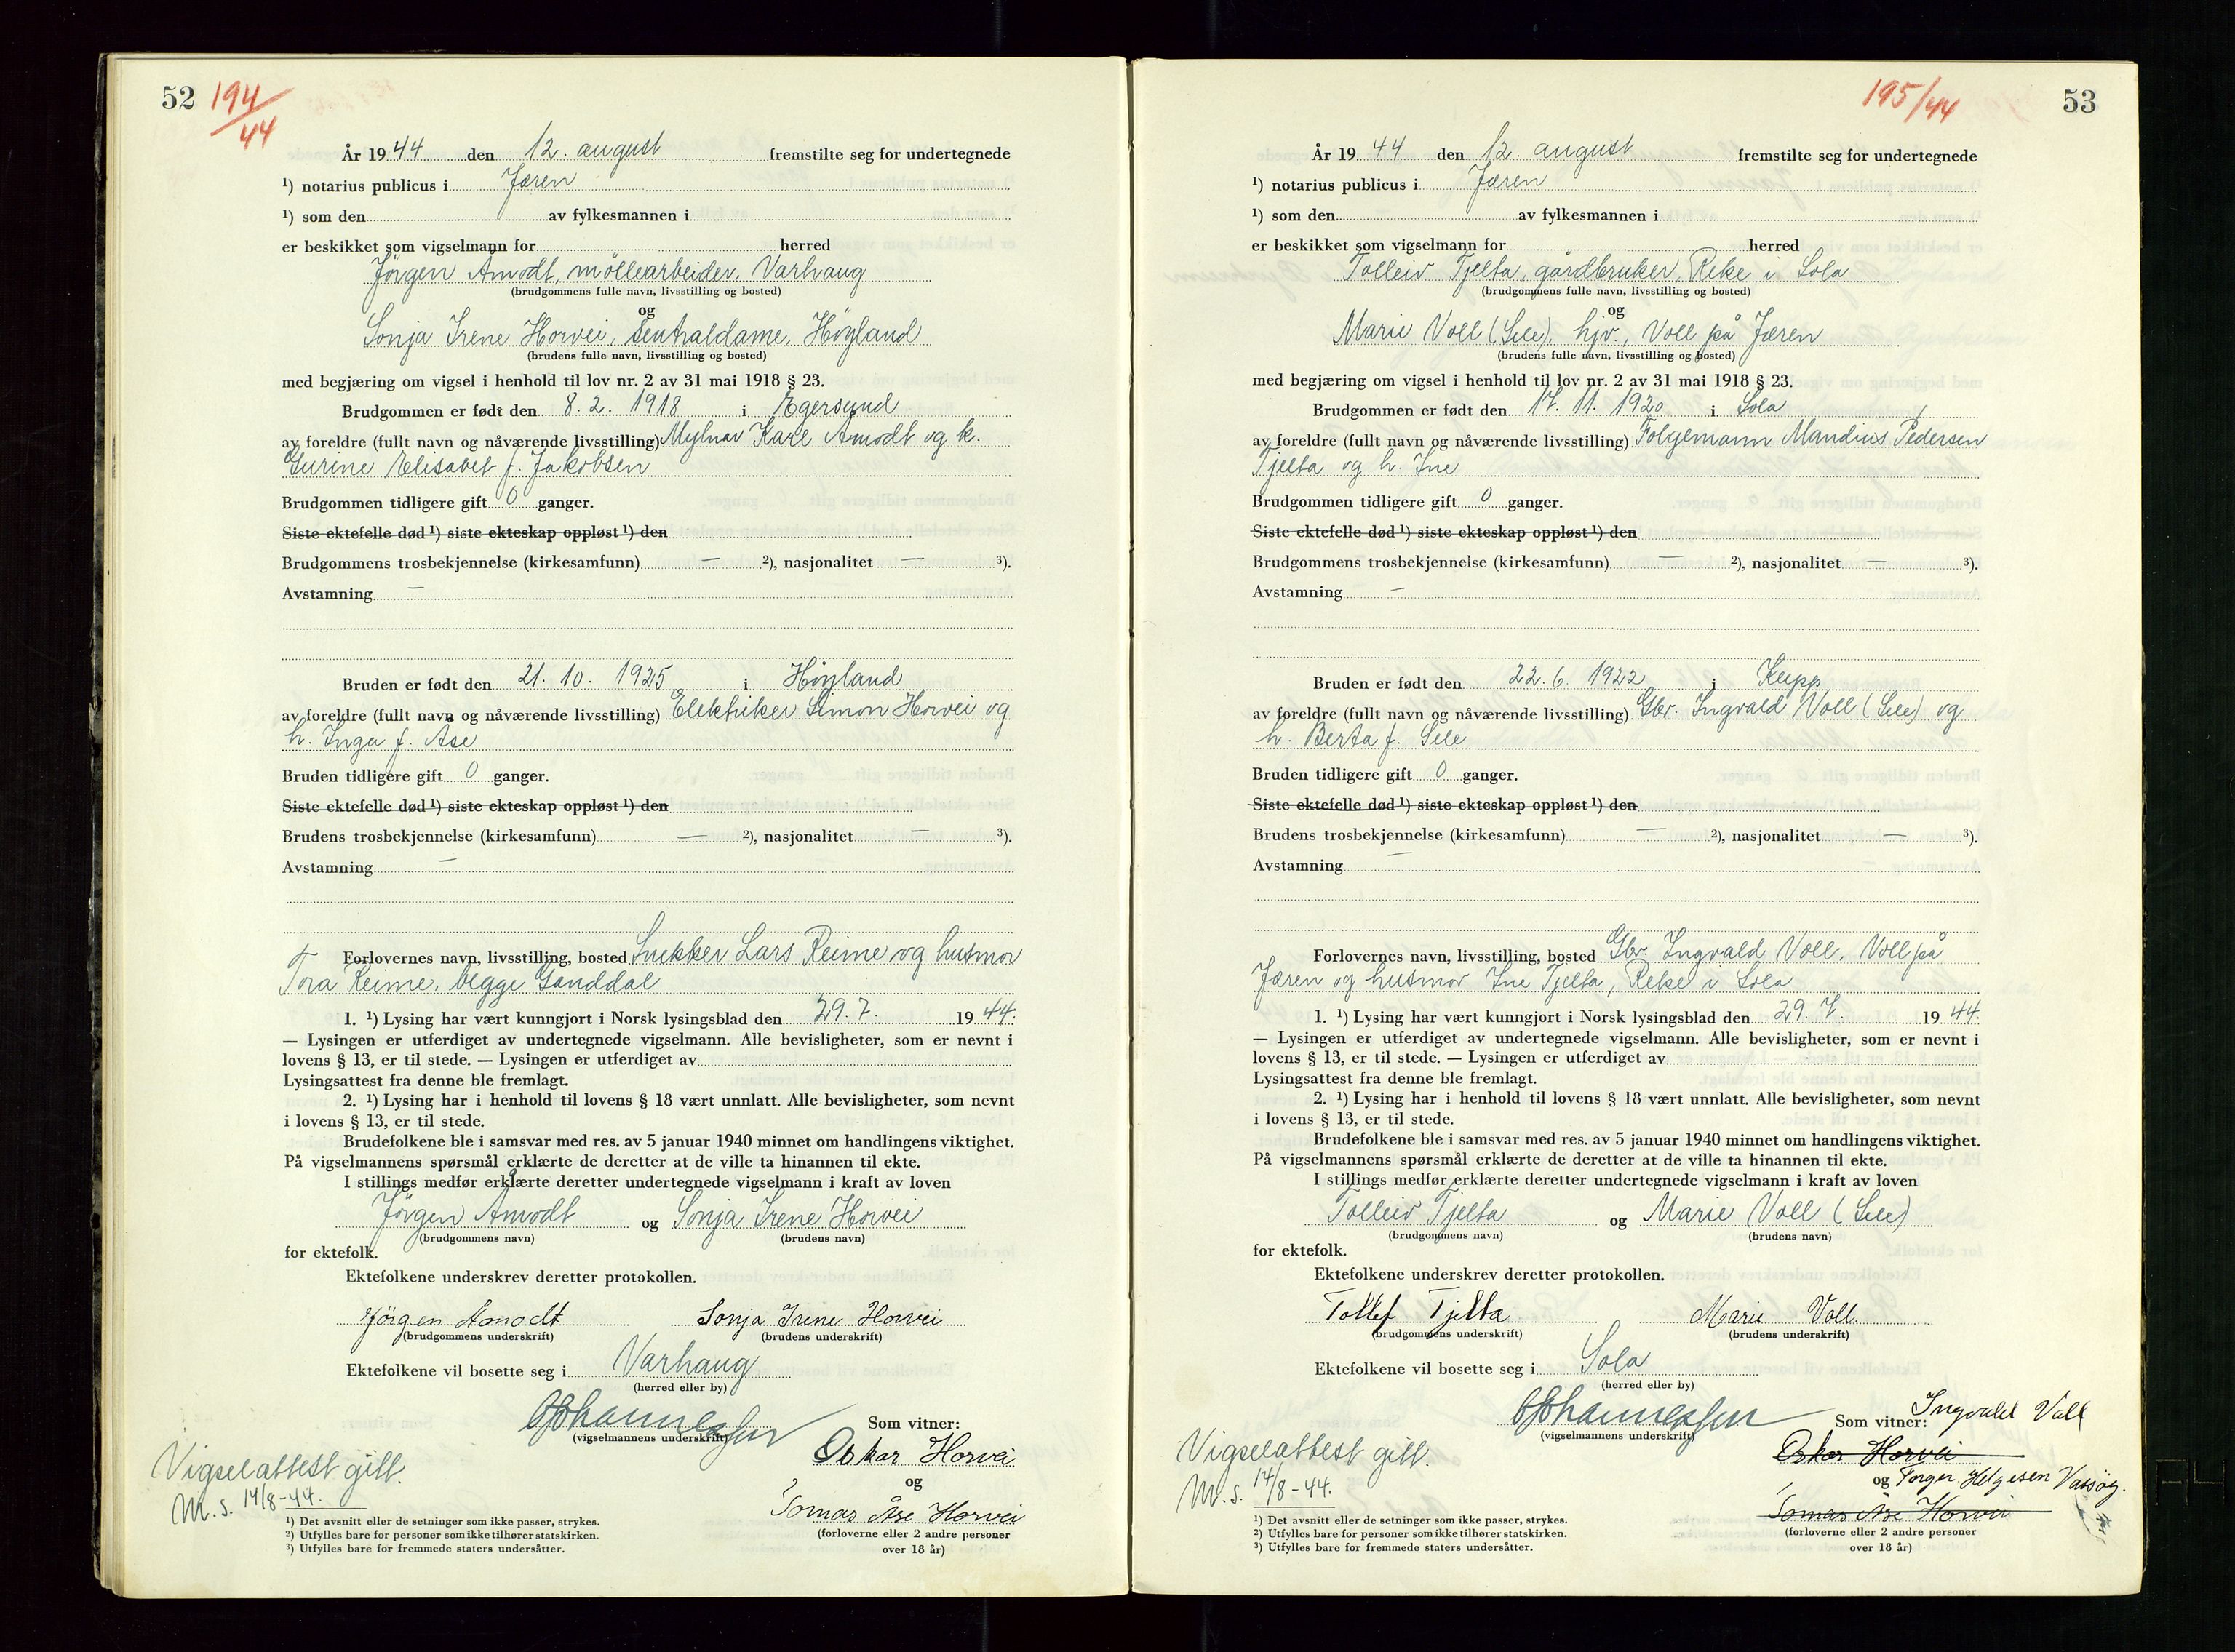 52 194/44
År 1944 den 12. august fremstilte seg for undertegnede
¹) notarius publicus i Jæren
¹) som den av fylkesmannen i
er beskikket som vigselmann for herred
Jörgen Åmodt, möllearbeider, Varhaug
(brudgommens fulle navn, livsstilling og bosted)
og
Sonja Irene Horvei, sentraldame, Höyland
(brudens fulle navn, livsstilling og bosted)
med begjæring om vigsel i henhold til lov nr. 2 av 31 mai 1918 § 23.
Brudgommen er født den 8. 2. 1918 i Egersund
av foreldre (fullt navn og nåværende livsstilling) Mylnar Karl Åmodt og h.
Gurine Elisabet f. Jakobsen
Brudgommen tidligere gift 0 ganger.
Siste ektefelle død ¹) siste ekteskap oppløst ¹) den
Brudgommens trosbekjennelse (kirkesamfunn) — ²), nasjonalitet — ³).
Avstamning —
Bruden er født den 21. 10. 1925 i Höyland
av foreldre (fullt navn og nåværende livsstilling) Elektriker Simon Horvei og
h. Inga f. Åse
Bruden tidligere gift 0 ganger.
Siste ektefelle død ¹) siste ekteskap oppløst ¹) den
Brudens trosbekjennelse (kirkesamfunn) — ²), nasjonalitet — ³).
Avstamning —
Forlovernes navn, livsstilling, bosted Snekker Lars Reime og husmor
Tora Reime, begge Ganddal
1. ¹) Lysing har vært kunngjort i Norsk lysingsblad den 29. 7. 1944.
— Lysingen er utferdiget av undertegnede vigselmann. Alle bevisligheter, som er nevnt i
lovens § 13, er til stede. — Lysingen er utferdiget av
Lysingsattest fra denne ble fremlagt.
2. ¹) Lysing har i henhold til lovens § 18 vært unnlatt. Alle bevisligheter, som nevnt
i lovens § 13, er til stede.
Brudefolkene ble i samsvar med res. av 5 januar 1940 minnet om handlingens viktighet.
På vigselmannens spørsmål erklærte de deretter at de ville ta hinannen til ekte.
I stillings medfør erklærte deretter undertegnede vigselmann i kraft av loven
Jörgen Åmodt og Sonja Irene Horvei
(brudgommens navn) (brudens navn)
for ektefolk.
Ektefolkene underskrev deretter protokollen.
Jörgen Åmodt Sonja Irene Horvei
(brudgommens underskrift) (brudens underskrift)
Ektefolkene vil bosette seg i Varhaug
(herred eller by)
Som vitner:
(vigselmannens underskrift)
Oskar Horvei
Vigselattest gitt.
og
M. s. 14/8-44.
Tomas Åse Horvei
¹) Det avsnitt eller de setninger som ikke passer, strykes.
²) Utfylles bare for personer som ikke tilhører statskirken.
³) Utfylles bare for fremmede staters undersåtter.
(forloverne eller 2 andre personer
over 18 år)
195/44 53
År 1944 den 12. august fremstilte seg for undertegnede
¹) notarius publicus i Jæren
¹) som den av fylkesmannen i
er beskikket som vigselmann for herred
Tolleiv Tjelta, gårdbruker, Reke i Sola
(brudgommens fulle navn, livsstilling og bosted)
og
Marie Voll (Sele), hjv., Voll på Jæren
(brudens fulle navn, livsstilling og bosted)
med begjæring om vigsel i henhold til lov nr. 2 av 31 mai 1918 § 23.
Brudgommen er født den 17. 11. 1920 i Sola
av foreldre (fullt navn og nåværende livsstilling) Folgemann Mandius Pedersen
Tjelta og h. Ine
Brudgommen tidligere gift 0 ganger.
Siste ektefelle død ¹) siste ekteskap oppløst ¹) den
Brudgommens trosbekjennelse (kirkesamfunn) — ²), nasjonalitet — ³).
Avstamning —
Bruden er født den 22. 6. 1922 i Klepp
av foreldre (fullt navn og nåværende livsstilling) Gbr. Ingvald Voll (Sele) og
h. Berta f. Sele
Bruden tidligere gift 0 ganger.
Siste ektefelle død ¹) siste ekteskap oppløst ¹) den
Brudens trosbekjennelse (kirkesamfunn) — ²), nasjonalitet — ³).
Avstamning —
Forlovernes navn, livsstilling, bosted Gbr. Ingvald Voll, Voll på
Jæren og husmor Ine Tjelta, Reke i Sola
1. ¹) Lysing har vært kunngjort i Norsk lysingsblad den 29. 7. 1944.
— Lysingen er utferdiget av undertegnede vigselmann. Alle bevisligheter, som er nevnt i
lovens § 13, er til stede. — Lysingen er utferdiget av
Lysingsattest fra denne ble fremlagt.
2. ¹) Lysing har i henhold til lovens § 18 vært unnlatt. Alle bevisligheter, som nevnt
i lovens § 13, er til stede.
Brudefolkene ble i samsvar med res. av 5 januar 1940 minnet om handlingens viktighet.
På vigselmannens spørsmål erklærte de deretter at de ville ta hinannen til ekte.
I stillings medfør erklærte deretter undertegnede vigselmann i kraft av loven
Tolleiv Tjelta og Marie Voll (Sele)
(brudgommens navn) (brudens navn)
for ektefolk.
Ektefolkene underskrev deretter protokollen.
Tollef Tjelta Marie Voll
(brudgommens underskrift) (brudens underskrift)
Ektefolkene vil bosette seg i Sola
(herred eller by)
Som vitner: Ingvald Voll
(vigselmannens underskrift)
Oskar Horvei
Vigselattest gitt.
og Torger Helgesen
M. s. 14/8-44.
Tomas Åse Horvei
¹) Det avsnitt eller de setninger som ikke passer, strykes.
²) Utfylles bare for personer som ikke tilhører statskirken.
³) Utfylles bare for fremmede staters undersåtter.
(forloverne eller 2 andre personer
over 18 år)